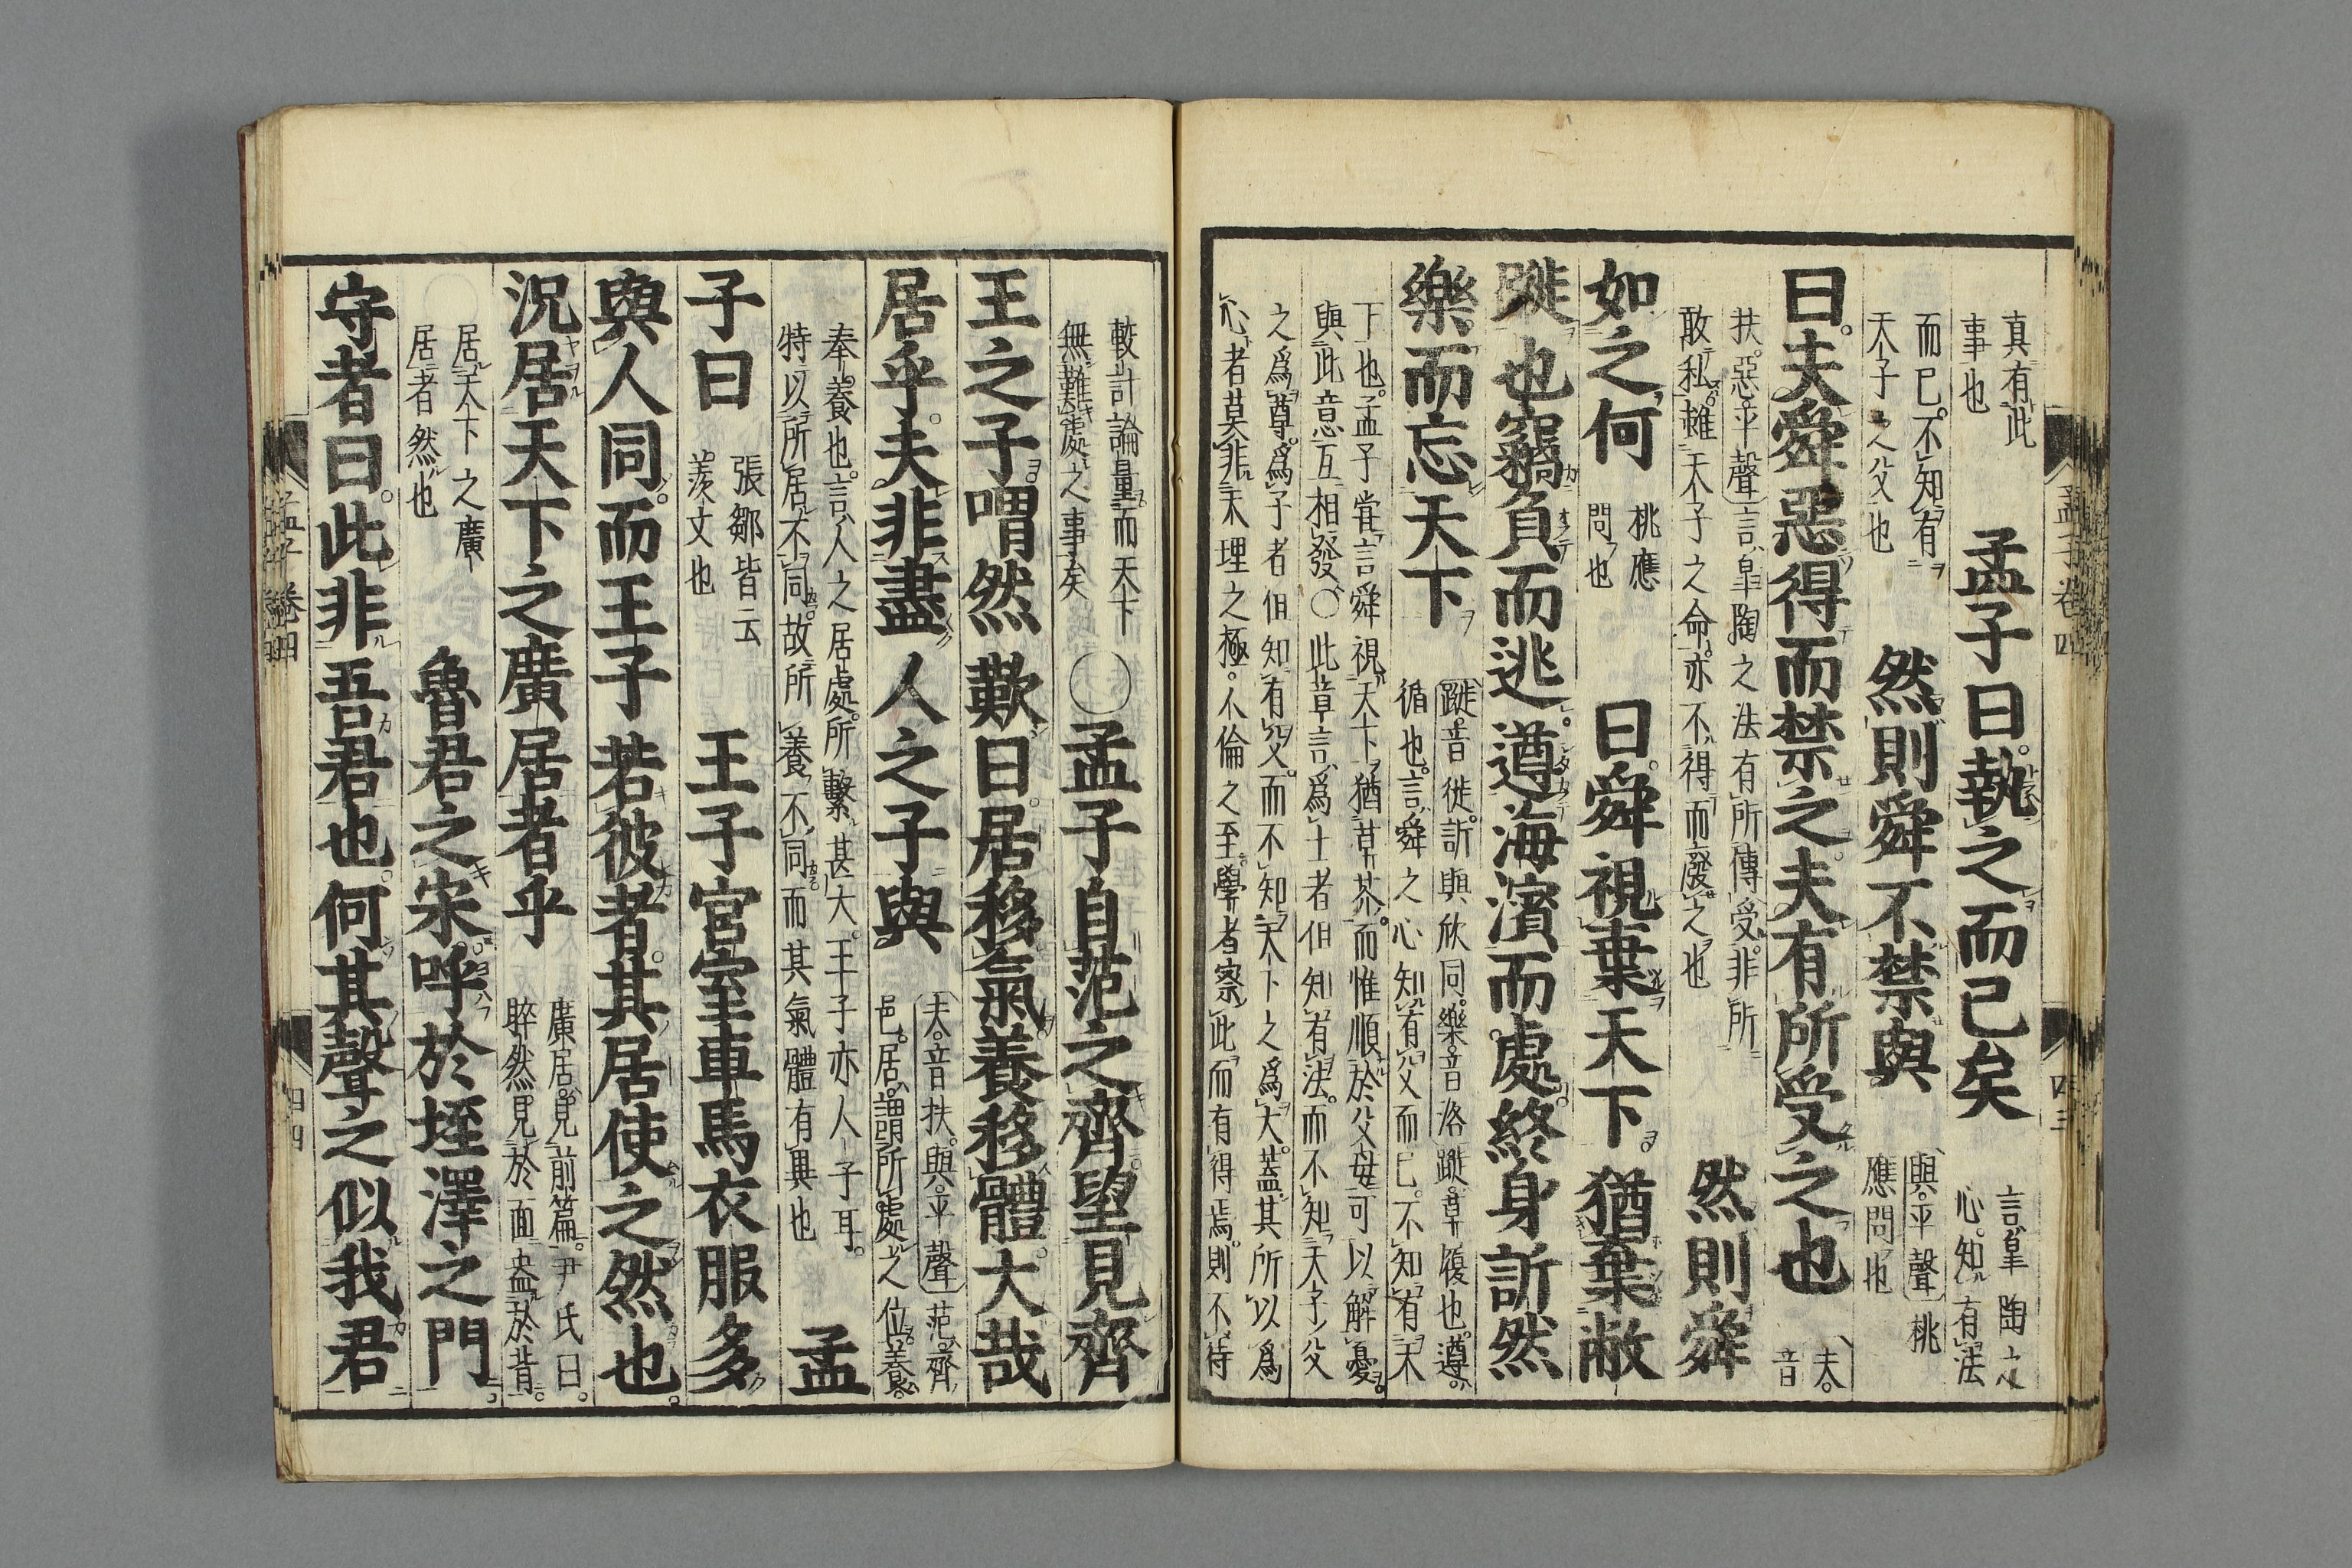 真有此
事也
孟子曰執之而已矣
言皐陶之
心知有法
而已不知有
天子之父也
然則舜不禁與
與平聲桃
應問也
曰夫舜惡得而禁之夫有所受之也
夫
音
扶惡平聲言皐陶之法有所傳受非所
敢私雖天子之命亦不得而廢之也
然則舜
如之何
桃應
問也
曰舜視棄天下猶棄敝
蹝也竊負而逃遵海濱而處終身訢然
樂而忘天下
蹝音徙訢與欣同樂音洛蹝草履也遵
循也言舜之心知有父而已不知有天
下也孟子嘗言舜視天下猶草芥而惟順於父母可以解憂
與此意互相發〇此章言爲士者但知有法而不知天子父
之爲尊爲子者但知有父而不知天下之爲大蓋其所以爲
心者莫非天理之極人倫之至學者察此而有得焉則不待
孟子卷四
四三
較計論量而天下
無難處之事矣
〇孟子自范之齊望見齊
王之子喟然歎曰居移氣養移體大哉
居乎夫非盡人之子與
夫音扶與平聲范齊
邑居謂所處之位養
奉養也言人之居處所繫甚大王子亦人子耳
特以所居不同故所養不同而其氣體有異也
孟
子曰
張鄒皆云
羨文也
王子宮室車馬衣服多
與人同而王子若彼者其居使之然也
況居天下之廣居者乎
廣居見前篇尹氏曰
睟然見於面盎於背
居天下之廣
居者然也
魯君之宋呼於垤澤之門
守者曰此非吾君也何其聲之似我君
孟子卷四
四四